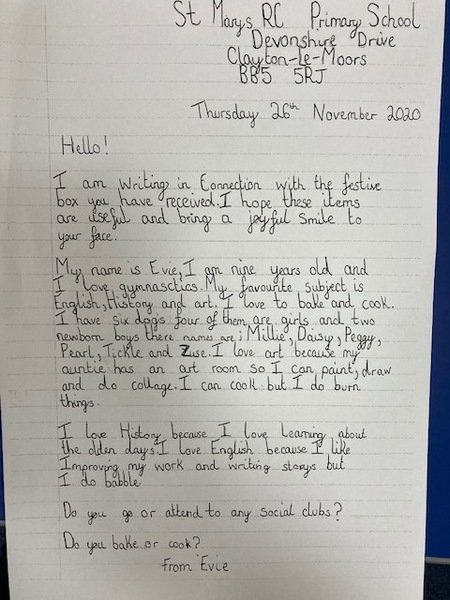 St Marys RC Primary School
Devonshire Drive
Clayton-Le-Moors
BB5 5RJ
Thursday 26th November 2020
Hello!
I am writing in Connection with the festive
box you have received. I hope these items
are useful and bring a joyful smile to
your face.
My name is Evie, I am nine years old and
I love gymnasctics. My favourite subject is
English, History and art. I love to bake and cook.
I have six dogs four of them are girls and two
newborn boys there names are; Millie, Daisy, Peggy,
Pearl, Tickle and Zuse. I love art because my
auntie has an art room so I can paint, draw
and do collage. I can cook but I do burn
things.
I love History because I love Learning about
the olden days. I love English because I like
Improving my work and writing storys but
I do babble
Do you go or attend to any social clubs?
Do you bake or cook?
From Evie